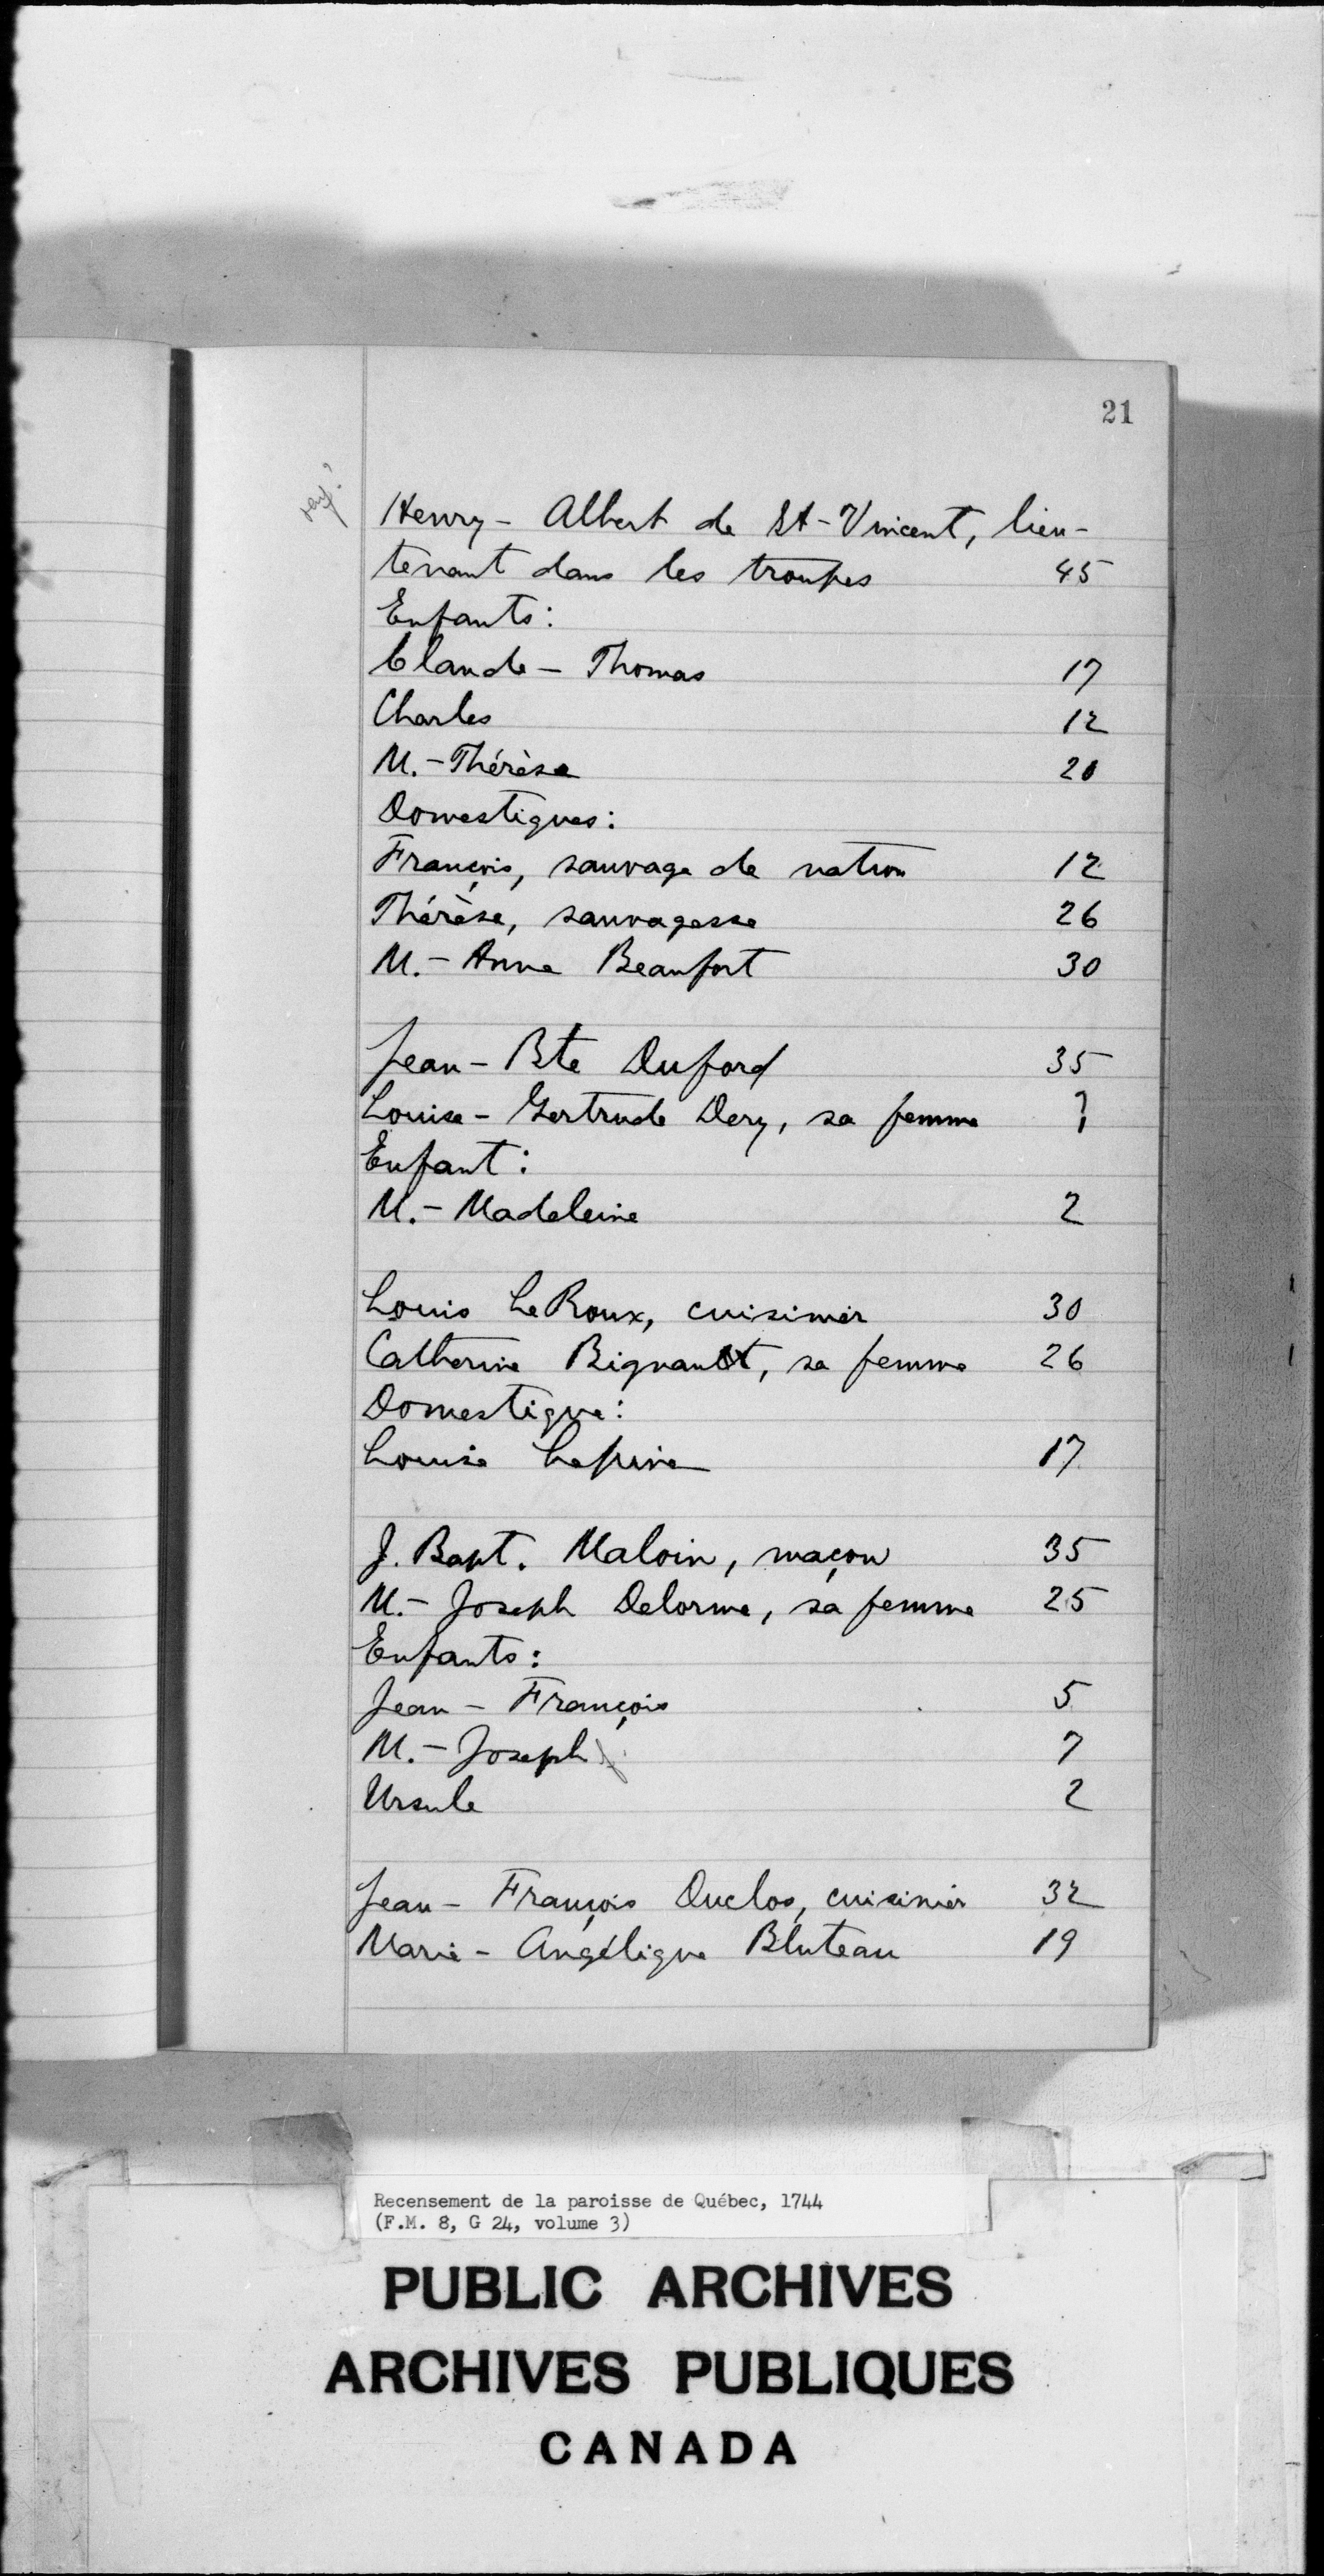 21
Henry - Albert de St-Vincent, lieu-
tenant dans les troupes 45
Enfants:
Claude - Thomas 17
Charles 12
M.- Thérèse 20
Domestiques:
François, sauvage de nation 12
Thérèse, sauvagesse 26
M.- Anne Beaufort 30
Jean - Bte Duford 35
Louise - Gertrude Dery, sa femme ?
Enfant:
M.- Madeleine 2
Louis LeRoux, cuisinier 30
Catherine Rignault, sa femme 26
Domestique:
Louise Lepine 17
J. Bapt. Maloin, maçon 35
M.- Joseph Delorme, sa femme 25
Enfants:
Jean - François 5
M.- Joseph 7
Ursule 2
Jean - François Duclos, cuisinier 32
Marie - Angélique Bluteau 19
Recensement de la paroisse de Québec, 1744
(F.M. 8, G 24, volume 3)
PUBLIC ARCHIVES
ARCHIVES PUBLIQUES
CANADA